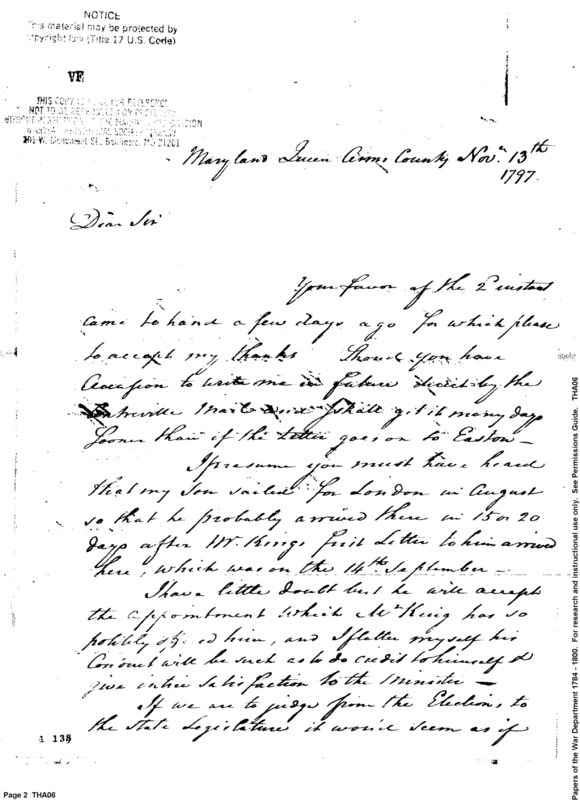 NOTICE
This material may be protected by
copyright law (Title 17 U.S. Code)
VF
THIS COPY IS FOR REFERENCE
NOT TO BE REPRODUCED OR
WITHOUT PERMISSION
MARYLAND HISTORICAL SOCIETY LIBRARY
201 W. Monument St., Baltimore, MD 21201
Maryland Queen Anns County Novr. 13th
1797.
Dear Sir
Your favor of the 2d instant
came to hand a few days ago for which please
to accept my thanks Should you have
Occasion to write me in future direct by the
Centreville Mail and I shall get it many days
sooner than if the Letter goes on to Easton —
I presume you must have heard
that my Son sailed for London in August
so that he probably arrived there in 15 or 20
days after Mr Kings first Letter to him arrived
here, which was on the 14th September —
I have little doubt but he will accept
the appointment which Mr King has so
politely offered him, and I flatter myself his
Conduct will be such as to do credit to himself &
give intire satisfaction to the Minister —
If we are to judge from the Elections to
the State Legislature it would seem as if
138
Page 2 THA06
Papers of the War Department 1784 - 1800. For research and instructional use only. See Permissions Guide. THA06